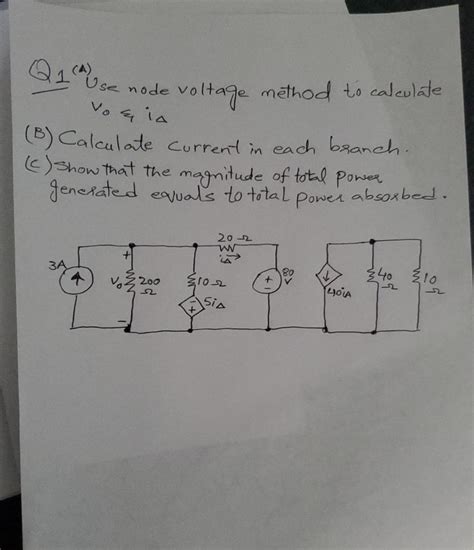 Q1 (A) Use node voltage method to calculate
Vo & i∆
(B) Calculate current in each branch.
(C) Show that the magnitude of total power
generated equals to total power absorbed.
20 Ω
i∆
3A
+
Vo
-
200
Ω
10 Ω
- +
5i∆
+ -
80
V
40i∆
40
Ω
10
Ω